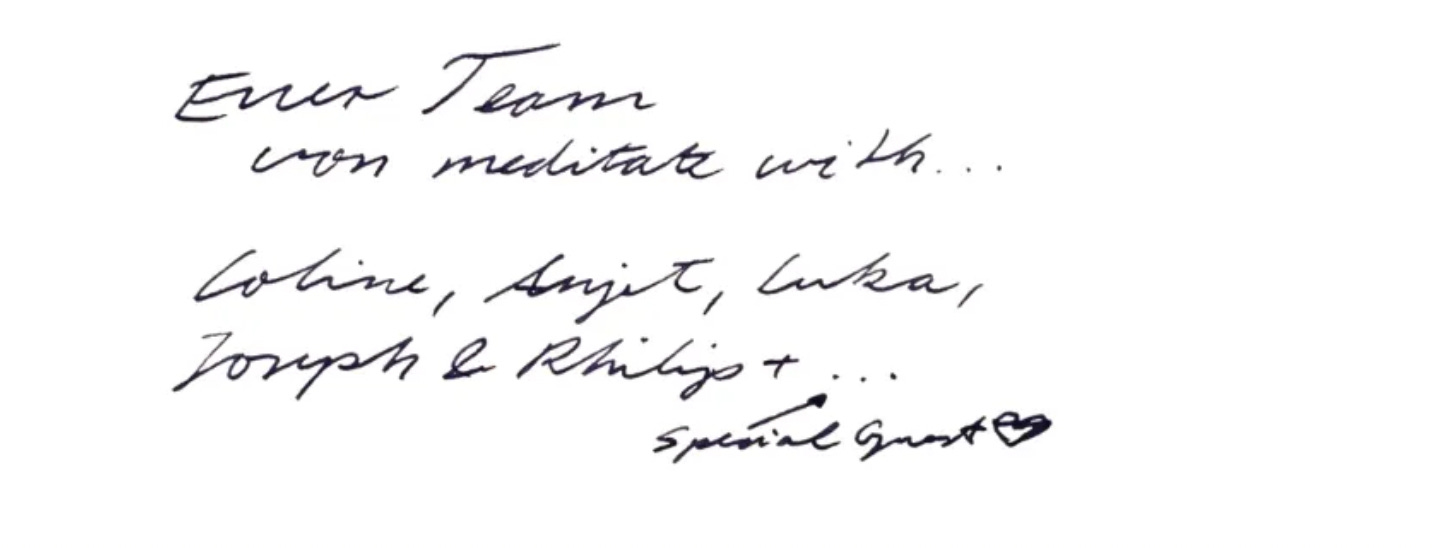 Euer Team
von meditate with...
Coline, Anjet, Luka,
Joseph & Philip + ...
special guest ♡